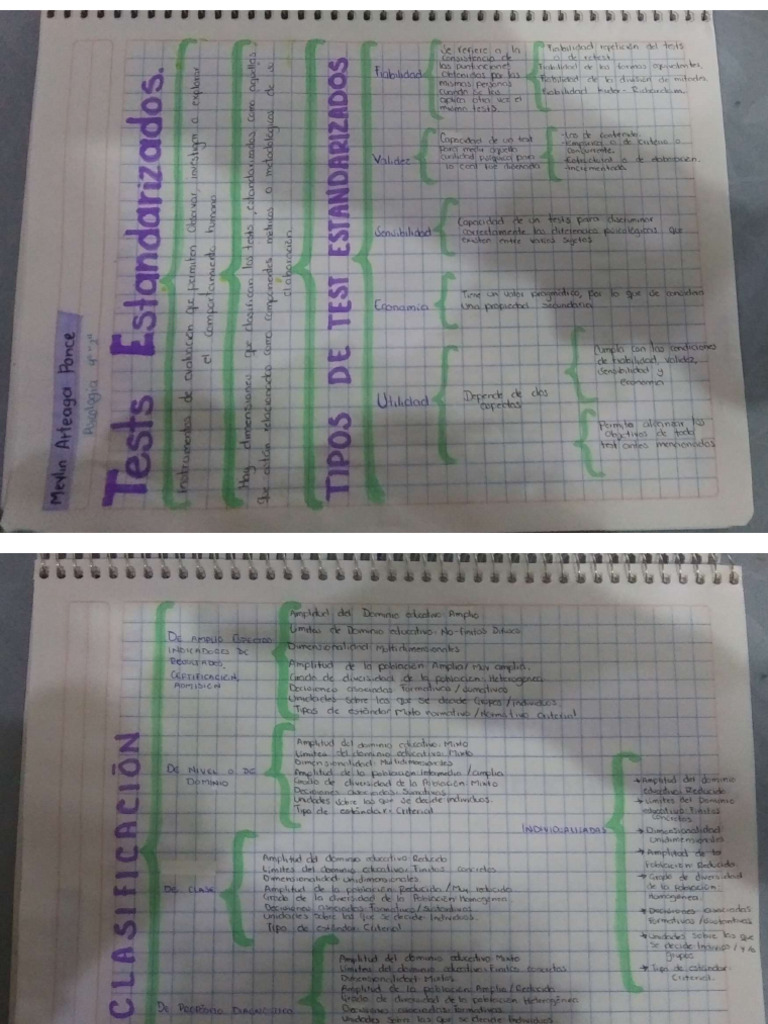 Mevlin Arteaga Ponce
Psicología 4° "J"
Tests Estandarizados.
Instrumentos de evaluación que permiten observar, investigar o explorar
el comportamiento humano
Hay dimensiones que clasifican los tests estandarizados como aquellas
que están relacionadas como componentes métricos o metodológicos de su
elaboración.
TIPOS DE TEST ESTANDARIZADOS
Fiabilidad
Se refiere a la
consistencia de
las puntuaciones
obtenidas por las
mismas personas
cuando se les
aplica otra vez el
mismo tests.
Fiabilidad repetición del tests
o de retest
Fiabilidad de las formas equivalentes.
Fiabilidad de la división de mitades.
Fiabilidad Kuder-Richardson.
Validez
Capacidad de un test
para medir aquella
cualidad psíquica para
la cual fue diseñado
-Los de contenido.
-Empírica o de criterio o
componente.
-Estructural o de elaboración.
-Incrementada.
Sensibilidad
Capacidad de un tests para discriminar
correctamente las diferencias psicológicas que
existen entre varios sujetos
Economica
Tiene un valor pragmático, por lo que se considera
una propiedad secundaria
Utilidad
Depende de dos
aspectos
Cumpla con las condiciones
de fiabilidad, validez,
sensibilidad y
economía
Permita alcanzar los
objetivos de todo
test antes mencionados
CLASIFICACIÓN
DE AMPLIO
INDICADORES DE
RESULTADOS,
CERTIFICACIÓN,
ADMISION
Amplitud del Dominio educativo: Amplio
Límites de Dominio educativo: No-finitos Difusos
Dimensionalidad: Multidimensionales
Amplitud de la población: Amplia/Muy amplia.
Grado de diversidad de la población: Heterogenea
Decisiones asociadas Formativos/sumativos
Unidades sobre las que se decide Grupos/Individuos.
Tipos de estándar: Mixto normativo/Normativo Criterial
DE NIVEL O DE
DOMINIO
Amplitud del dominio educativo: Mixto
Límites del dominio educativo: Mixto
Dimensionalidad: Multidimensionales
Amplitud de la población: Intermedio/amplia
Grado de diversidad de la Población: Mixto
Decisiones asociadas: Sumativas
Unidades sobre las que se decide individuos.
Tipo de estándar: Criterial
DE CLASE
Amplitud del dominio educativo: Reducido
Límites del dominio educativo: Finitos concretos
Dimensionalidad: Unidimensionales
Amplitud de la población: Reducida/Muy reducida
Grado de la diversidad de la Población: homogénea.
Decisiones asociadas Formativo/sustantivas
Unidades sobre las que se decide Individuos.
Tipo de estándar: Criterial
DE PROPÓSITO DIAGNOSTICO
Amplitud del dominio educativo: Mixto
Límites del dominio educativo: Finitos concretos
Dimensionalidad: Mixtos
Amplitud de la población: Amplia/Reducida
Grado de diversidad de la población: Heterogénea
Decisiones asociadas: Formativas
Unidades sobre las que se decide Individuos
INDIVIDUALIZADAS
→Amplitud del dominio
educativo: Reducido.
→Límites del Dominio
educativo: Finitos
concretos
→Dimensionalidad
Unidimensionales
→Amplitud de la
población: Reducida.
→Grado de diversidad
de la población:
homogénea.
→Decisiones asociadas
Formativas/sustantivas
→Unidades sobre las que
se decide Individuo/ y/o
grupos
→Tipo de estándar:
Criterial.